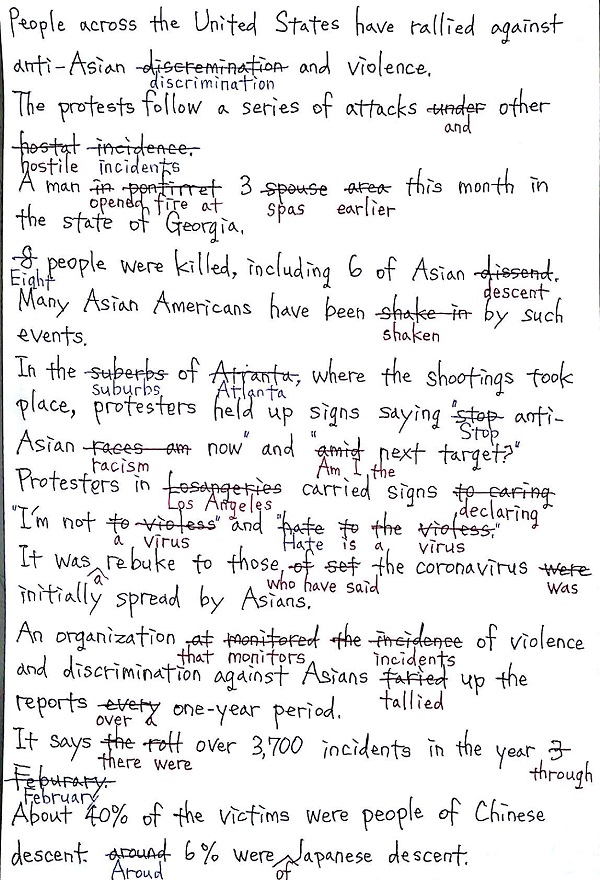 People across the United States have rallied against
anti-Asian discremination and violence.
discrimination
The protests follow a series of attacks under other
and
hostat incidence.
hostile incidents
A man in pontirret 3 spouse area this month in
opened fire at spas earlier
the state of Georgia.
8 people were killed, including 6 of Asian dissend.
Eight descent
Many Asian Americans have been shake in by such
shaken
events.
In the suberbs of Atranta, where the shootings took
suburbs Atlanta
place, protesters held up signs saying "stop anti-
Stop
Asian races am now" and "amid next target?"
racism Am I the
Protesters in Losangeries carried signs to caring
Los Angeles declaring
"I'm not to violess" and "hate to the violess."
a virus Hate is a virus
It was rebuke to those, of set the coronavirus were
a who have said was
initially spread by Asians.
An organization at monitored the incidence of violence
that monitors incidents
and discrimination against Asians taried up the
tallied
reports every one-year period.
over a
It says the roll over 3,700 incidents in the year 3
there were through
Feburary.
February
About 40% of the victims were people of Chinese
descent. around 6% were Japanese descent.
Aroud of